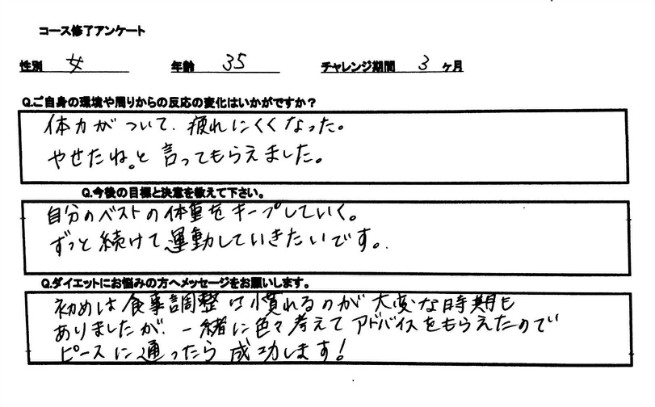 コース修了アンケート
性別 女 年齢 35 チャレンジ期間 3 ヶ月
Q.ご自身の環境や周りからの反応の変化はいかがですか？
体力がついて、疲れにくくなった。
やせたね。と言ってもらえました。
Q.今後の目標と決意を教えて下さい。
自分のベストの体重をキープしていく。
ずっと続けて運動していきたいです。
Q.ダイエットにお悩みの方へメッセージをお願いします。
初めは食事調整は慣れるのが大変な時期も
ありましたが、一緒に色々考えてアドバイスをもらえたので
ピースに通ったら成功します!